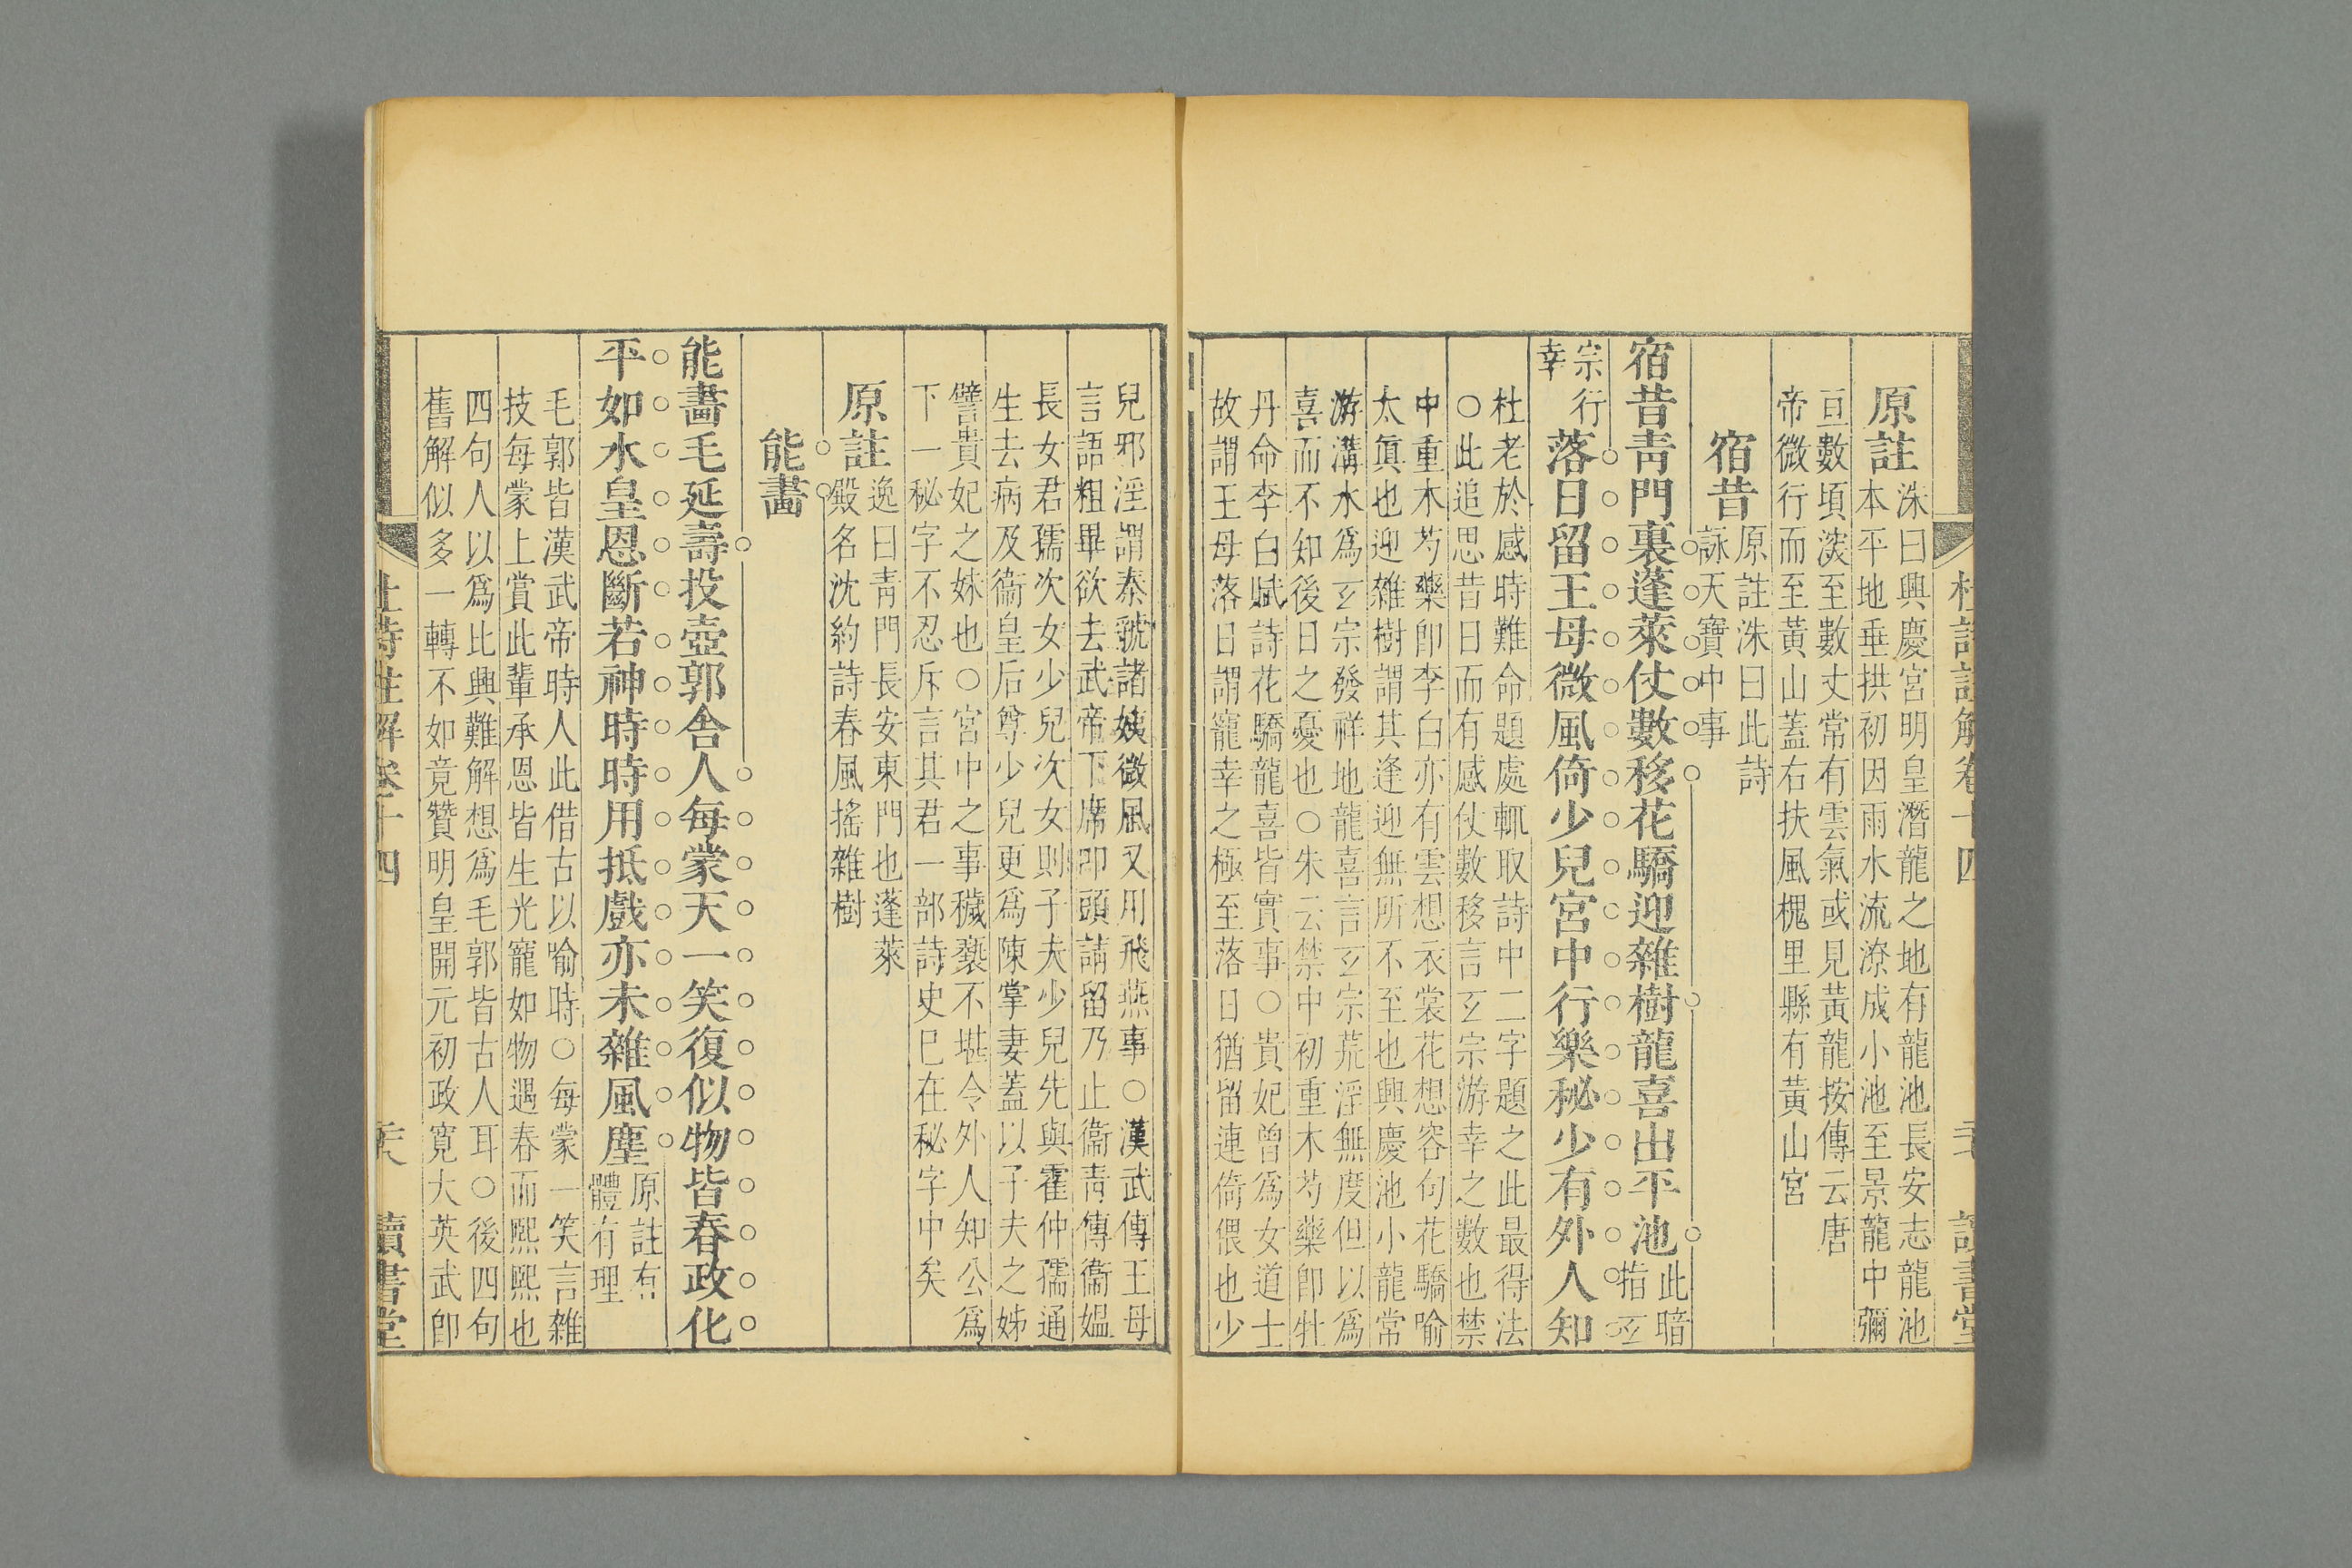 杜詩註解卷十四
讀書堂
原註洙曰興慶宮明皇潛龍之地有龍池長安志龍池
本平地垂拱初因雨水流潦成小池至景龍中彌
亘數頃深至數丈常有雲氣或見黃龍按傳云唐
帝微行而至黃山蓋右扶風槐里縣有黃山宮
宿昔原註洙曰此詩
詠天寶中事
宿昔青門裏蓬萊仗數移花驕迎雜樹龍喜出平池此暗
指玄
宗行
幸落日留王母微風倚少兒宮中行樂秘少有外人知
杜老於感時難命題處輒取詩中二字題之此最得法
○此追思昔日而有感仗數移言玄宗游幸之數也禁
中重木芍藥即李白亦有雲想衣裳花想容句花驕喻
太真也迎雜樹謂其逢迎無所不至也興慶池小龍常
游溝水為玄宗發祥地龍喜言玄宗荒淫無度但以為
喜而不知後日之憂也○朱云禁中初重木芍藥即牡
丹命李白賦詩花驕龍喜皆實事○貴妃曾為女道士
故謂王母落日謂寵幸之極至落日猶留連倚偎也少
兒邪淫謂秦虢諸姨微風又用飛燕事○漢武傳王母
言語粗畢欲去武帝下席叩頭請留乃止衞青傳衞媼
長女君孺次女少兒次女則子夫少兒先與霍仲孺通
生去病及衞皇后尊少兒更為陳掌妻蓋以子夫之姊
譬貴妃之妹也○宮中之事穢褻不堪令外人知公為
下一秘字不忍斥言其君一部詩史已在秘字中矣
原註逸曰青門長安東門也蓬萊
殿名沈約詩春風搖雜樹
能畫
能畫毛延壽投壺郭舍人每蒙天一笑復似物皆春政化
平如水皇恩斷若神時時用抵戲亦未雜風塵原註有
體有理
毛郭皆漢武帝時人此借古以喻時○每蒙一笑言雜
技每蒙上賞此輩承恩皆生光寵如物遇春而熙熙也
四句人以為比興難解想為毛郭皆古人耳○後四句
舊解似多一轉不如竟贊明皇開元初政寬大英武即
杜詩註解卷十四
讀書堂